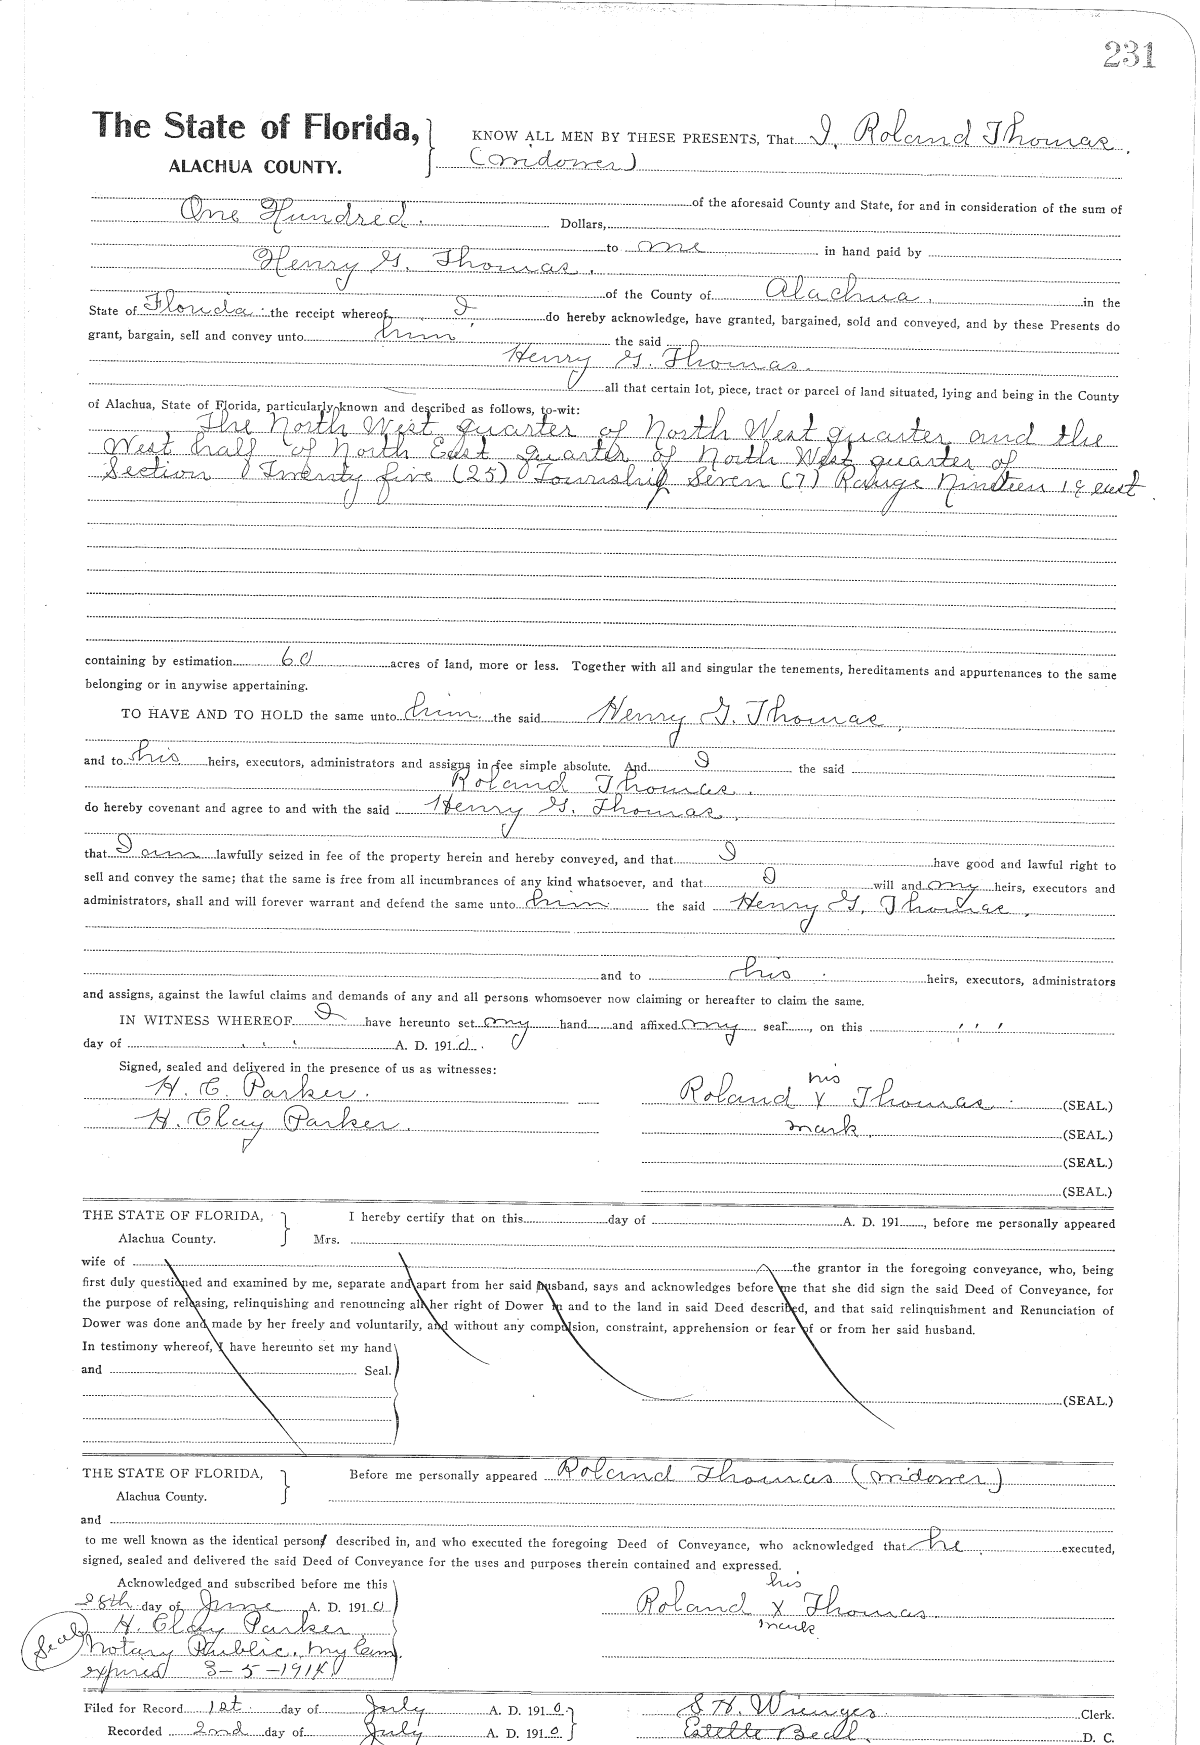 231
The State of Florida,
ALACHUA COUNTY.
KNOW ALL MEN BY THESE PRESENTS, That I, Roland Thomas.
(widower)
of the aforesaid County and State, for and in consideration of the sum of
One Hundred. Dollars,
to me in hand paid by
Henry G. Thomas.
of the County of Alachua. in the
State of Florida: the receipt whereof, I do hereby acknowledge, have granted, bargained, sold and conveyed, and by these Presents do
grant, bargain, sell and convey unto him the said
Henry G. Thomas.
all that certain lot, piece, tract or parcel of land situated, lying and being in the County
of Alachua, State of Florida, particularly known and described as follows, to-wit:
The North West quarter of North West quarter and the
West half of North East quarter of North West quarter of
Section Twenty five (25) Township Seven (7) Range Nineteen 19 east.
containing by estimation 60 acres of land, more or less. Together with all and singular the tenements, hereditaments and appurtenances to the same
belonging or in anywise appertaining.
TO HAVE AND TO HOLD the same unto him the said Henry G. Thomas,
and to his heirs, executors, administrators and assigns in fee simple absolute. And I the said
Roland Thomas.
do hereby covenant and agree to and with the said Henry G. Thomas,
that I am lawfully seized in fee of the property herein and hereby conveyed, and that I have good and lawful right to
sell and convey the same; that the same is free from all incumbrances of any kind whatsoever, and that I will and my heirs, executors and
administrators, shall and will forever warrant and defend the same unto him the said Henry G. Thomas,
and to his heirs, executors, administrators
and assigns, against the lawful claims and demands of any and all persons whomsoever now claiming or hereafter to claim the same.
IN WITNESS WHEREOF I have hereunto set my hand and affixed my seal, on this , , ,
day of , , , A. D. 1910.
Signed, sealed and delivered in the presence of us as witnesses:
H. C. Parker.
H. Clay Parker.
his
Roland X Thomas (SEAL.)
mark. (SEAL.)
(SEAL.)
(SEAL.)
THE STATE OF FLORIDA,
Alachua County.
I hereby certify that on this day of A. D. 191 , before me personally appeared
Mrs.
wife of the grantor in the foregoing conveyance, who, being
first duly questioned and examined by me, separate and apart from her said husband, says and acknowledges before me that she did sign the said Deed of Conveyance, for
the purpose of releasing, relinquishing and renouncing all her right of Dower in and to the land in said Deed described, and that said relinquishment and Renunciation of
Dower was done and made by her freely and voluntarily, and without any compulsion, constraint, apprehension or fear of or from her said husband.
In testimony whereof, I have hereunto set my hand
and Seal.
(SEAL.)
THE STATE OF FLORIDA,
Alachua County.
Before me personally appeared Roland Thomas (widower)
and
to me well known as the identical person described in, and who executed the foregoing Deed of Conveyance, who acknowledged that he executed,
signed, sealed and delivered the said Deed of Conveyance for the uses and purposes therein contained and expressed.
Acknowledged and subscribed before me this
28th day of June A. D. 1910
H. Clay Parker
(Seal) Notary Public. My Com.
expired 3-5-1914
his
Roland X Thomas
mark
Filed for Record 1st day of July A. D. 1910.
Recorded 2nd day of July A. D. 1910
S. H. Wienges Clerk.
Estelle Beall. D. C.